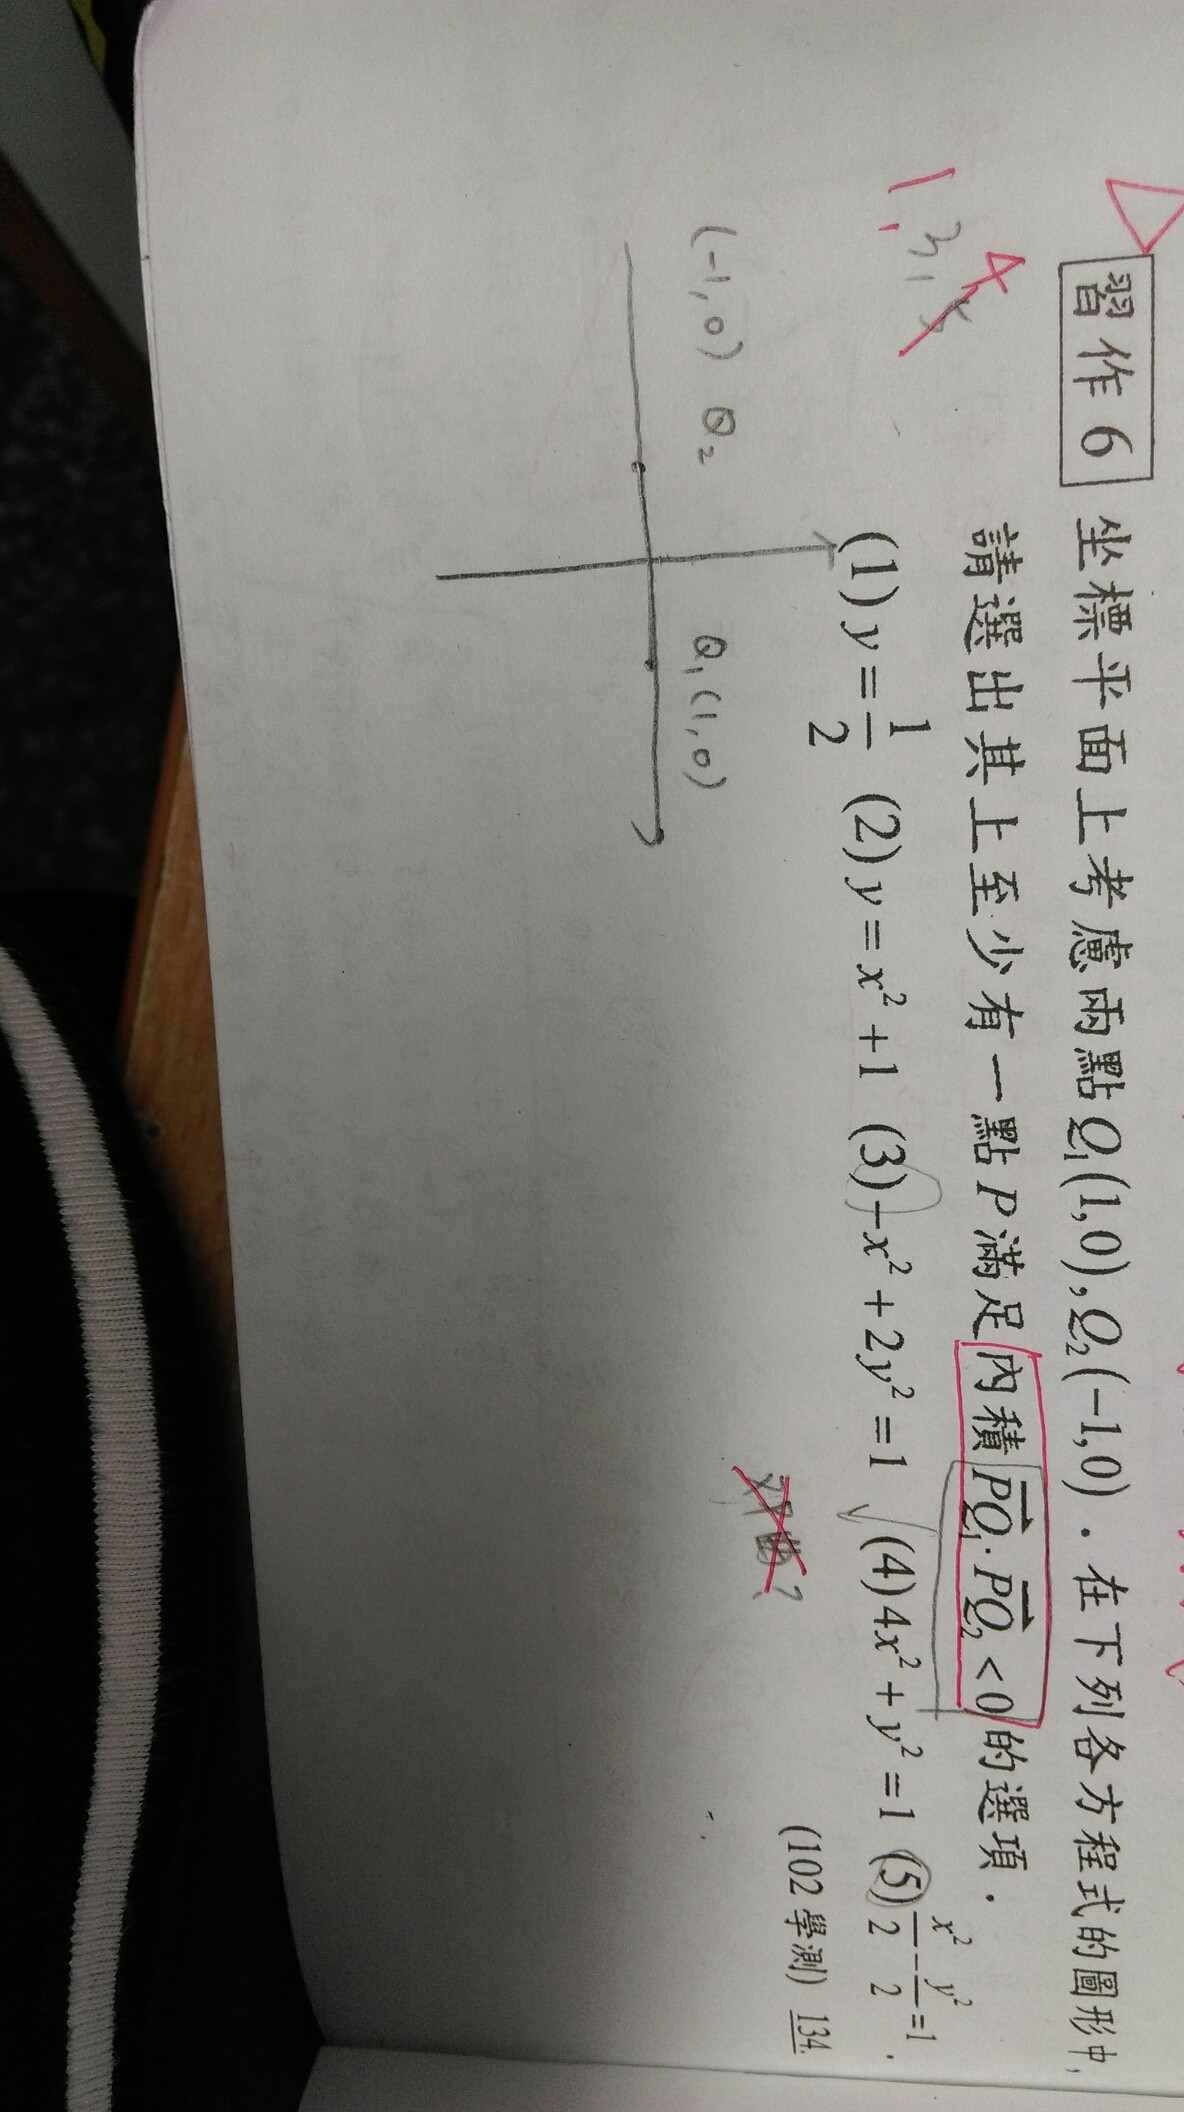 習作6 坐標平面上考慮兩點Q₁(1,0),Q₂(−1,0).在下列各方程式的圖形中,
請選出其上至少有一點P滿足內積PQ₁⃗·PQ₂⃗<0的選項.
1, 3, 4
(1) y=1/2 (2) y=x²+1 (3) −x²+2y²=1 (4) 4x²+y²=1 (5) x²/2−y²/2=1.
(102學測) 134.
(-1,0) Q₂ Q₁(1,0)